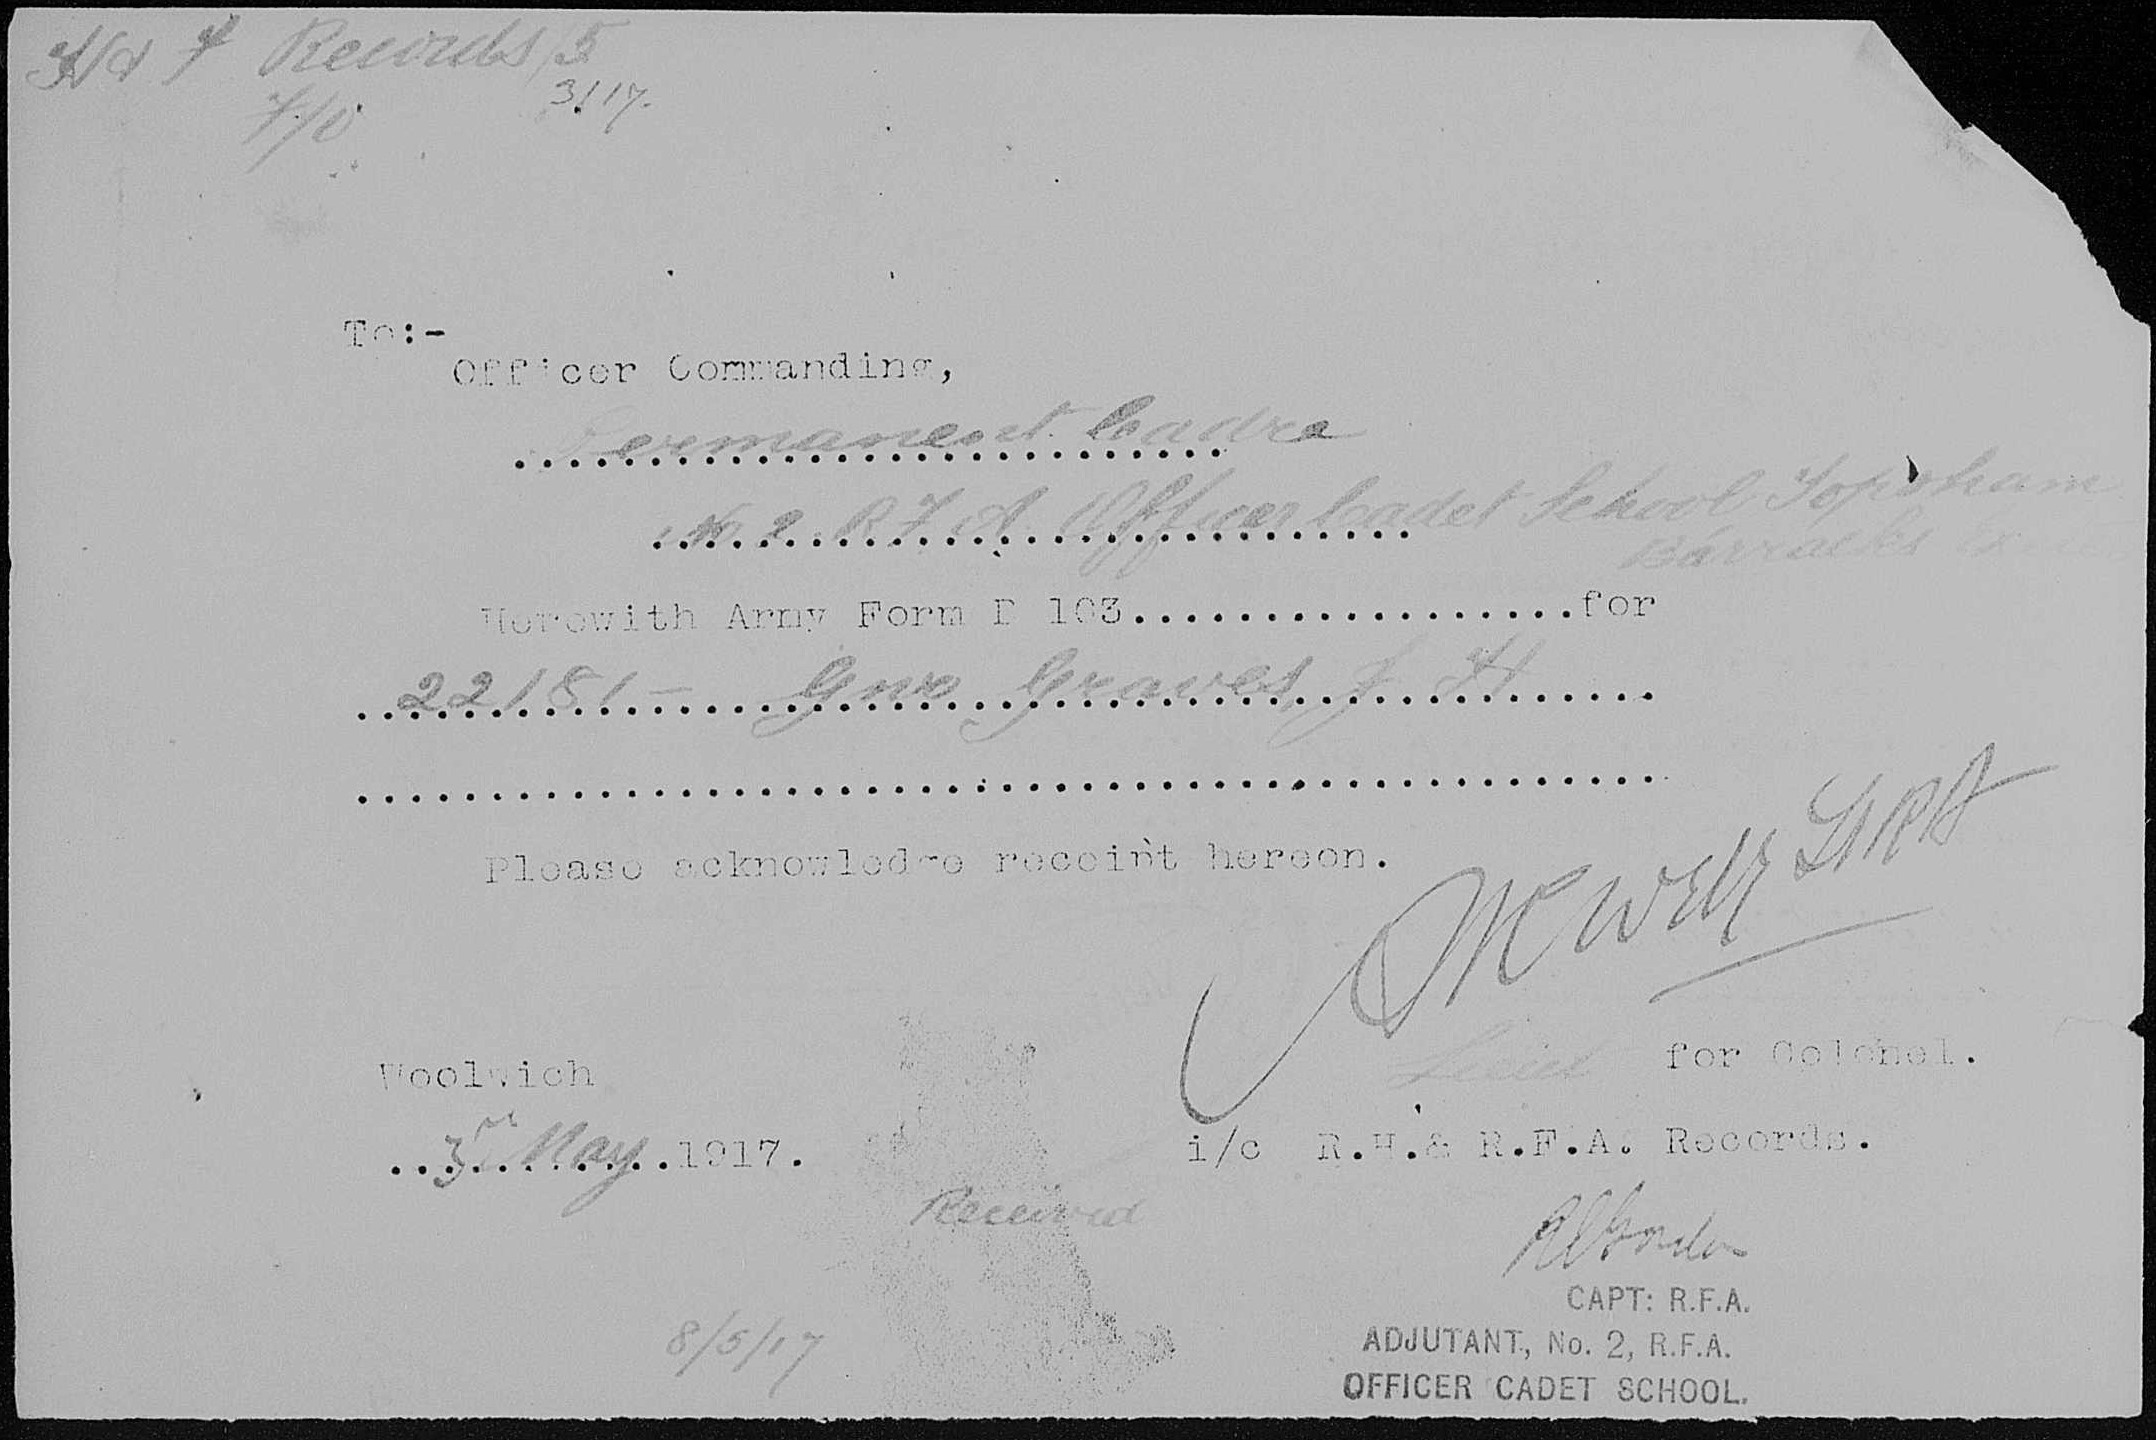 H & F Records/5
3/17.
To:-
Officer Commanding,
Permanent Cadre
No 2. R.F.A. Officer Cadet School Topsham
Barracks
Herewith Army Form B 103..................for
22181 - Gnr Graves, J. H
Please acknowledge receipt hereon.
Lieut for Colonel.
Woolwich
3rd May 1917.
i/c R.H.& R.F.A. Records.
Received
CAPT: R.F.A.
8/5/17
ADJUTANT, No. 2, R.F.A.
OFFICER CADET SCHOOL.